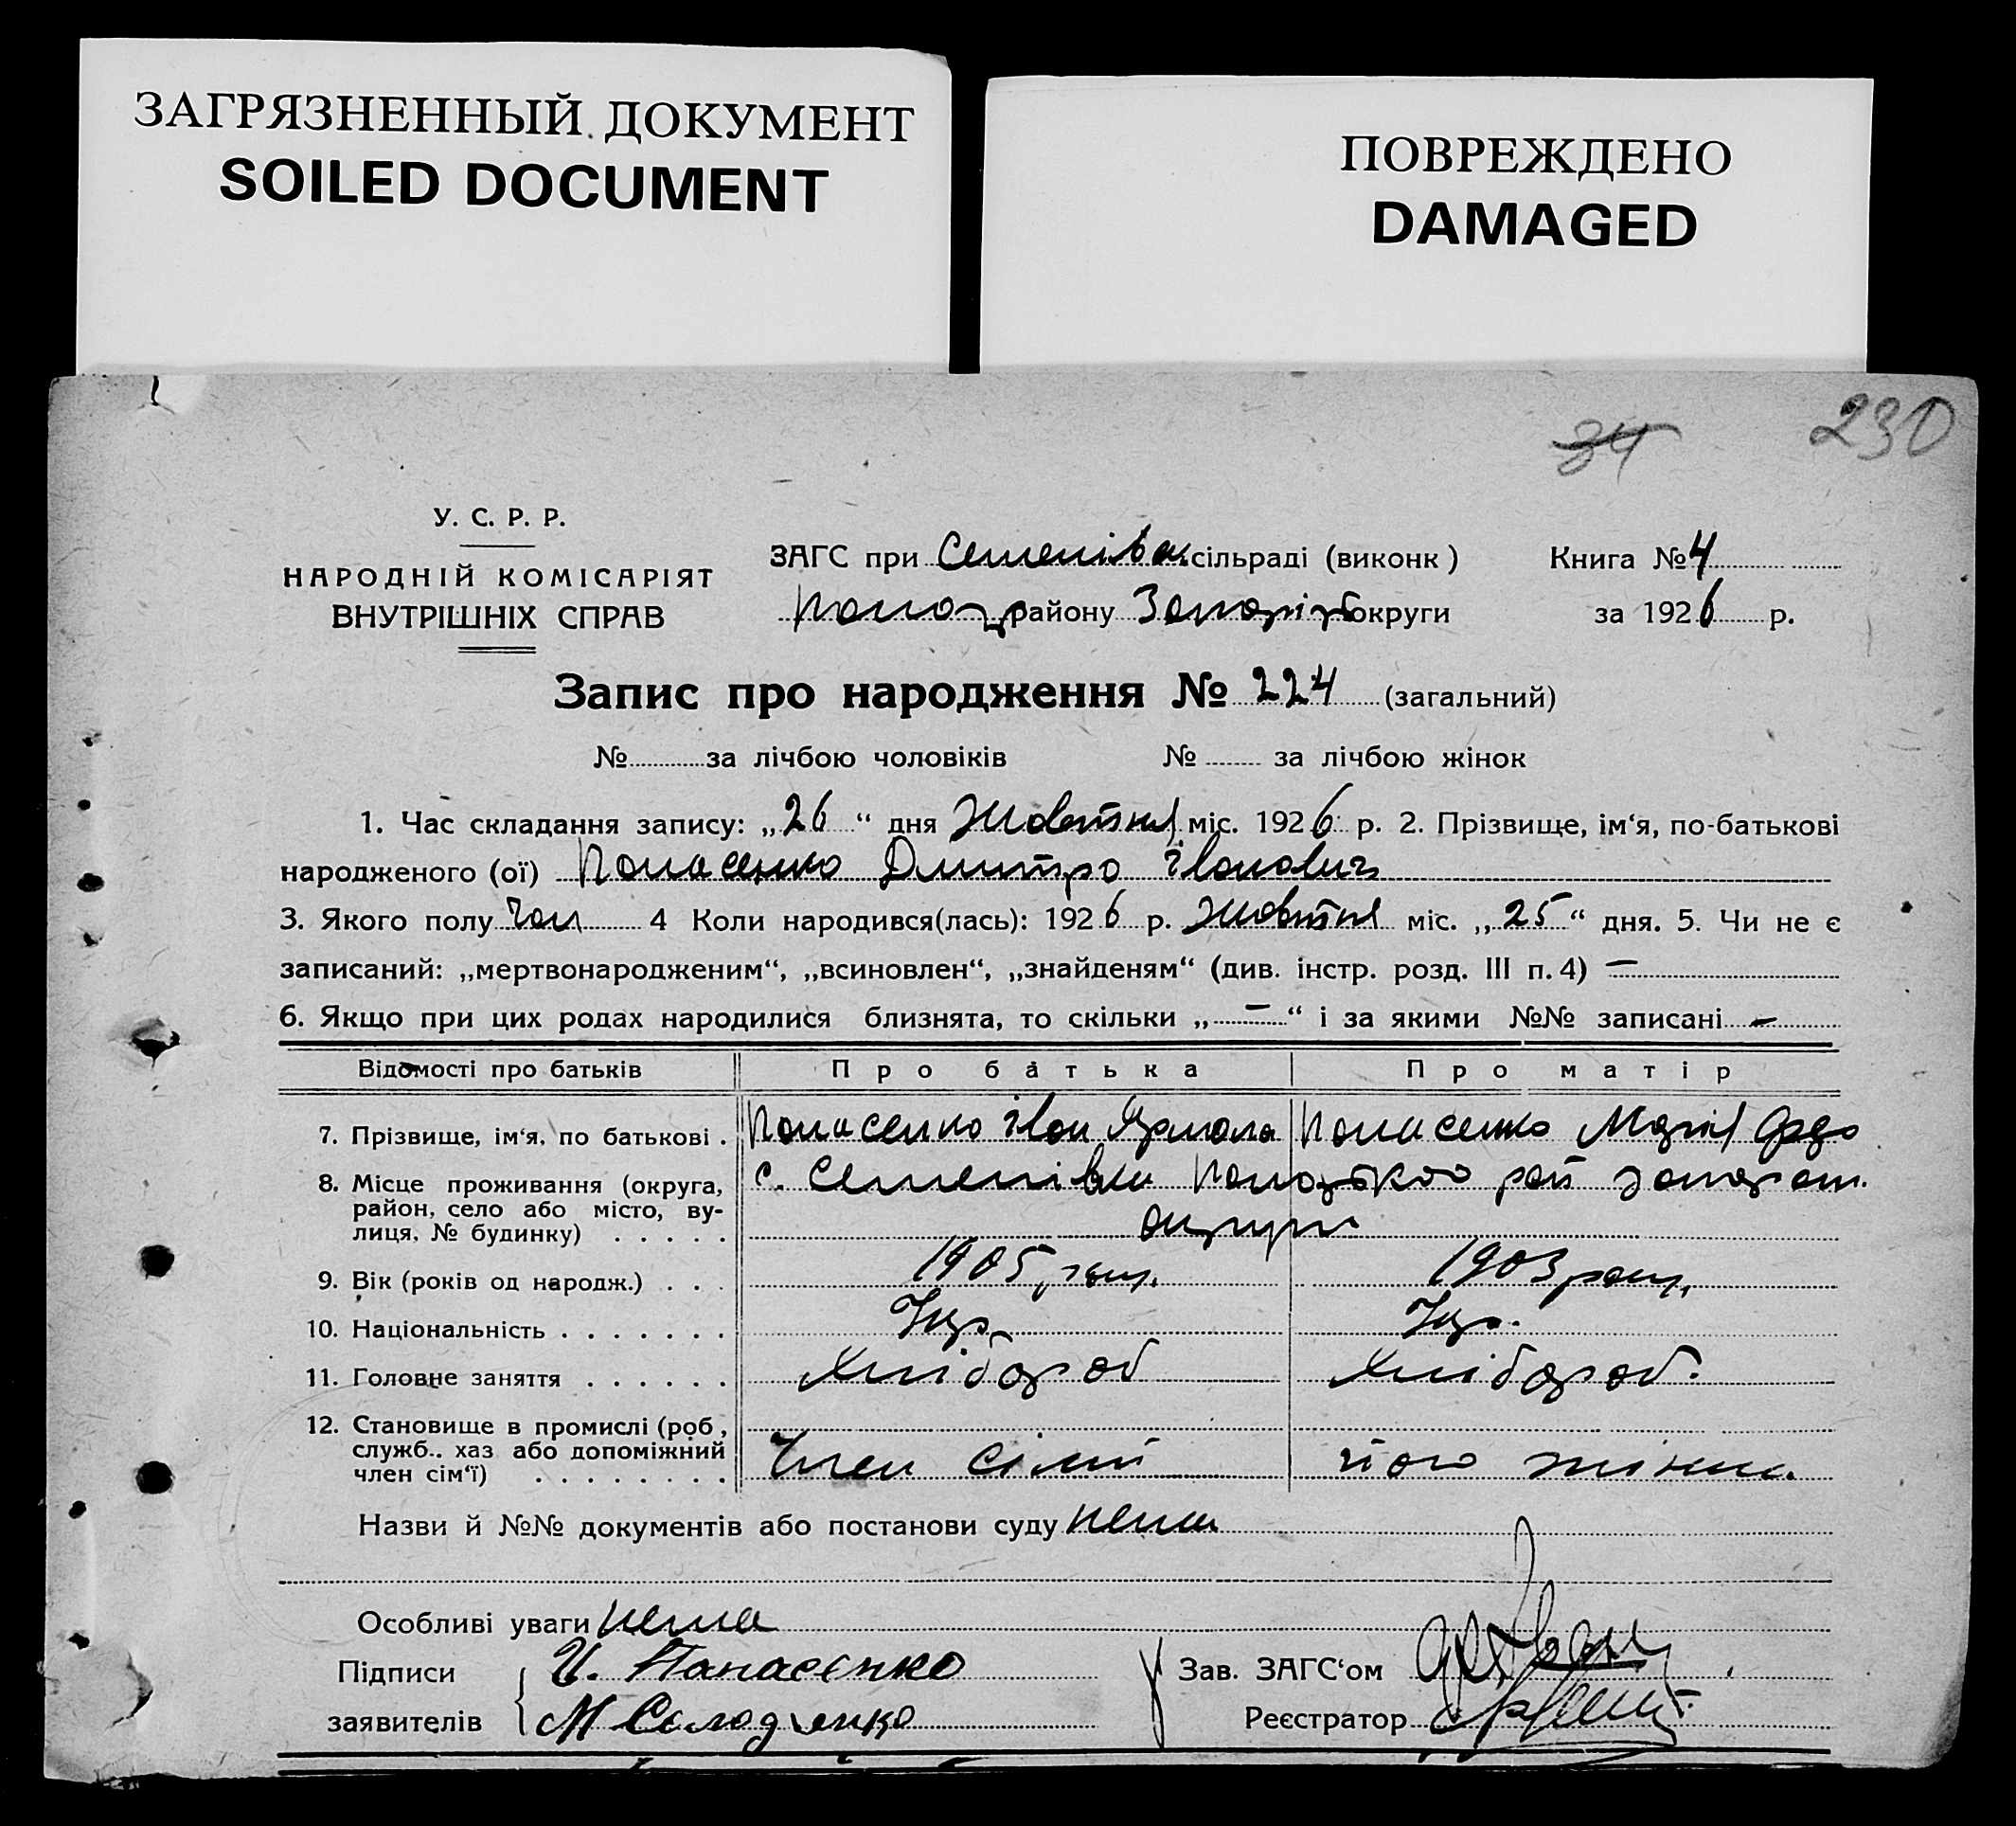 ЗАГРЯЗНЕННЫЙ ДОКУМЕНТ
SOILED DOCUMENT
ПОВРЕЖДЕНО
DAMAGED
34 230
У. С. Р. Р.
НАРОДНІЙ КОМІСАРІЯТ
ВНУТРІШНІХ СПРАВ
ЗАГС при Семенівськ. сільраді (виконк) Книга № 4
району Запоріз округи за 1926 р.
Запис про народження № 224 (загальний)
№ за лічбою чоловіків № за лічбою жінок
1. Час складання запису: „26“ дня Жовтня міс. 1926 р. 2. Прізвище, ім‘я, по-батькові
народженого (ої) Панасенко Дмитро Іванович
3. Якого полу Чол 4 Коли народився(лась): 1926 р. Жовтня міс. „25“ дня. 5. Чи не є
записаний: „мертвонародженим“, „всиновлен“, „знайденям“ (див. інстр. розд. III п. 4) —
6. Якщо при цих родах народилися близнята, то скільки „—“ і за якими №№ записані —
Відомості про батьків Про батька Про матір
7. Прізвище, ім‘я, по батькові . Панасенко Іван Ярмола Панасенко Марія Федо
8. Місце проживання (округа, район, село або місто, вулиця, № будинку) . . . . . с. Семенівки рай Запорож.
округи
9. Вік (років од народж.) . . . 1905 роц. 1903 роц.
10. Національність . . . . . . . Укр. Укр.
11. Головне заняття . . . . . . Хлібороб Хлібороб.
12. Становище в промислі (роб, служб., хаз або допоміжний член сім‘ї) . . . . . . . . Член сімї його жінка.
Назви й №№ документів або постанови суду нема
Особливі уваги нема
Підписи И. Панасенко Зав. ЗАГС‘ом
заявителів М Солодченко Реєстратор